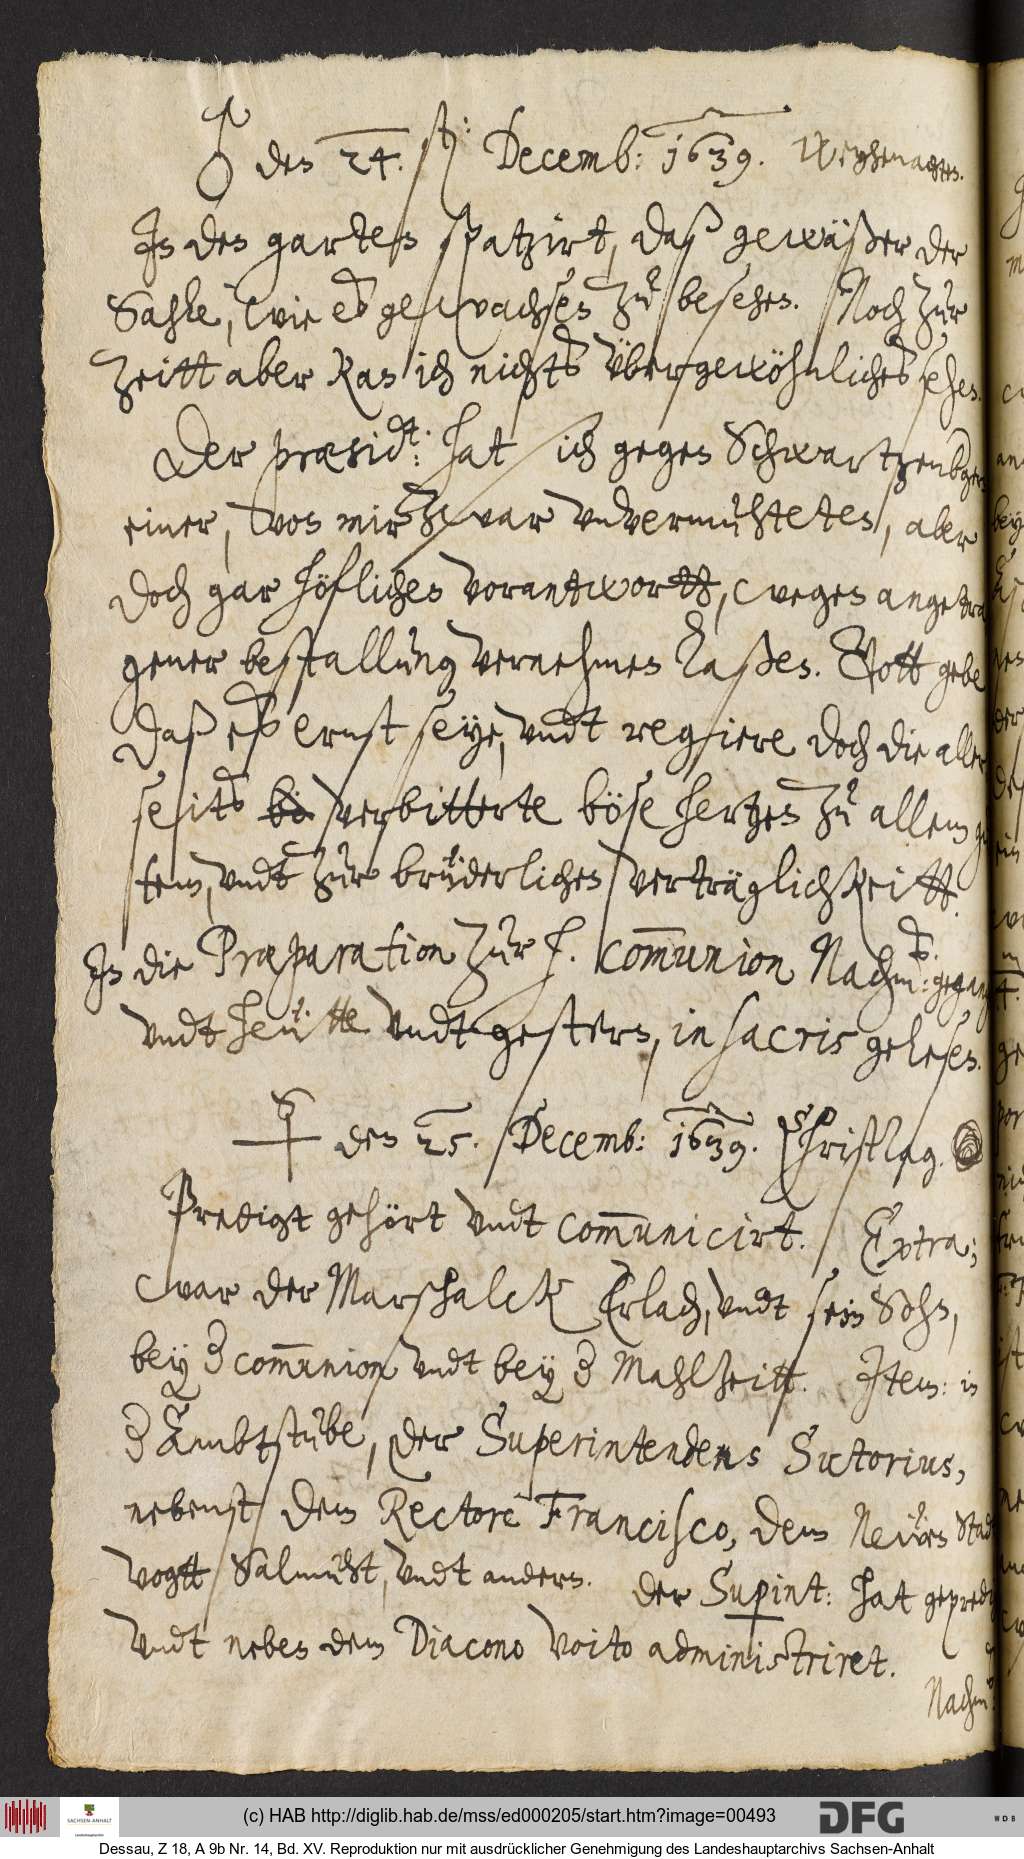 ♂ den 24. st: Decemb: 1639. Weyhenachten.
In den garten spatzirt, daß gewäßer der
Sahle, wie es gewachsen zu besehen. Noch zur
Zeitt aber kan ich nichts übergewöhnliches sehen.
Der præsidt: hat ich gegen Schwartzenbgern
einer, von mir zwar unvermuhteten, aber
doch gar höflichen vorantwortt, wegen angetra
gener bestallung vernehmen laßen. Gott gebe
daß eß ernst seye, undt regiere doch die aller
seits bö verbitterte böse hertzen zu allem gu
tem, undt zur brüderlichen verträglichkeitt.
In die Præparation zur h. com̄union Nachm: gegangen
undt heütte undt gestern, in sacris gelesen.
☿ den 25. Decemb: 1639. Christtag.
Predigt gehört undt com̄unicirt. Extra;
war der Marschalck Erlach, undt sein Sohn,
bey d com̄union undt bey d Mahlzeitt. Item: in
d Ambtstube, der Superintendens Sutorius,
nebenst dem Rectore Francisco, dem Neüen Stad
vogtt Salmuht, undt andern. Der Supint: hat gepredi
undt neben dem Diacono Voito administriret.
Nachm:
(c) HAB http://diglib.hab.de/mss/ed000205/start.htm?image=00493
SACHSEN-ANHALT
DFG
WDB
Dessau, Z 18, A 9b Nr. 14, Bd. XV. Reproduktion nur mit ausdrücklicher Genehmigung des Landeshauptarchivs Sachsen-Anhalt